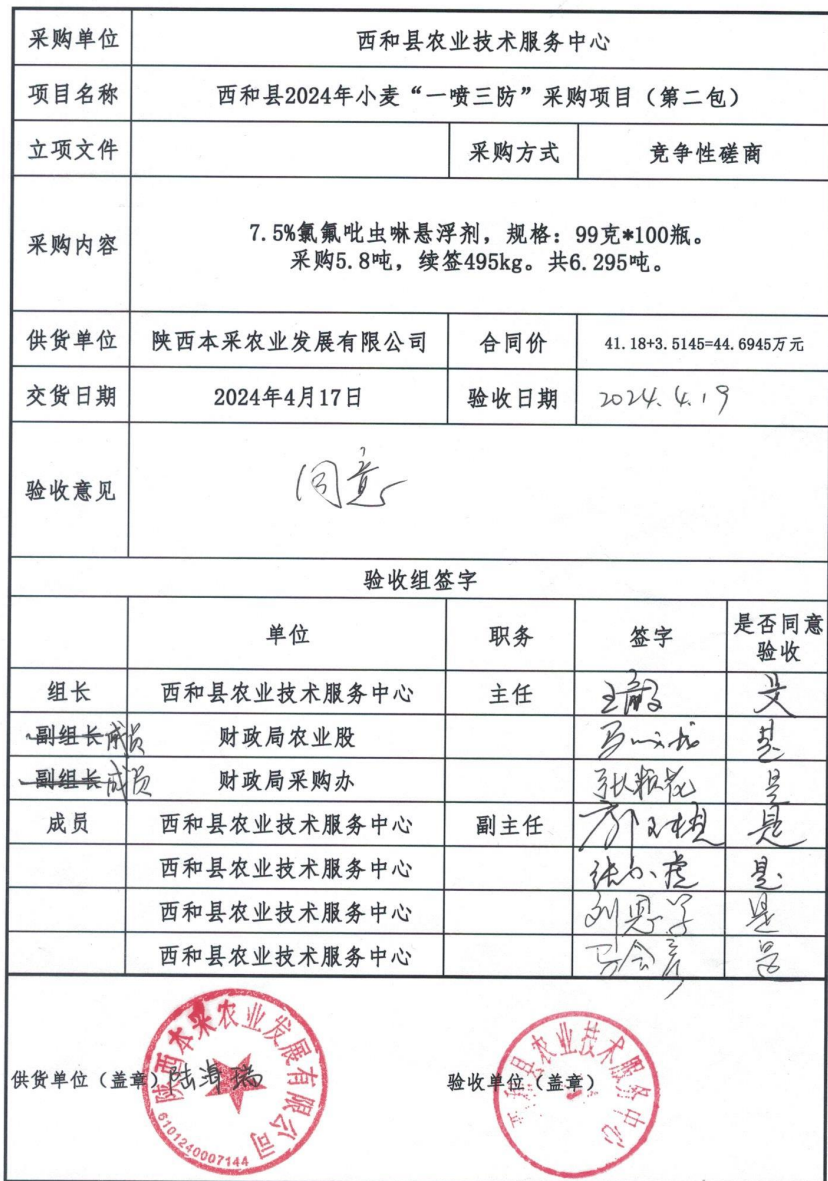 采购单位 西和县农业技术服务中心
项目名称 西和县2024年小麦“一喷三防”采购项目（第二包）
立项文件 采购方式 竞争性磋商
采购内容 7.5%氯氟吡虫啉悬浮剂，规格：99克*100瓶。
采购5.8吨，续签495kg。共6.295吨。
供货单位 陕西本采农业发展有限公司 合同价 41.18+3.5145=44.6945万元
交货日期 2024年4月17日 验收日期 2024.4.19
验收意见 同意
验收组签字
单位 职务 签字 是否同意
验收
组长 西和县农业技术服务中心 主任
副组长 成员 财政局农业股 是
副组长 成员 财政局采购办 是
成员 西和县农业技术服务中心 副主任 是
西和县农业技术服务中心 张小虎 是
西和县农业技术服务中心 刘思学 是
西和县农业技术服务中心 是
陕西本采农业发展有限公司
6101240007144
供货单位（盖章）
西和县农业技术服务中心
验收单位（盖章）